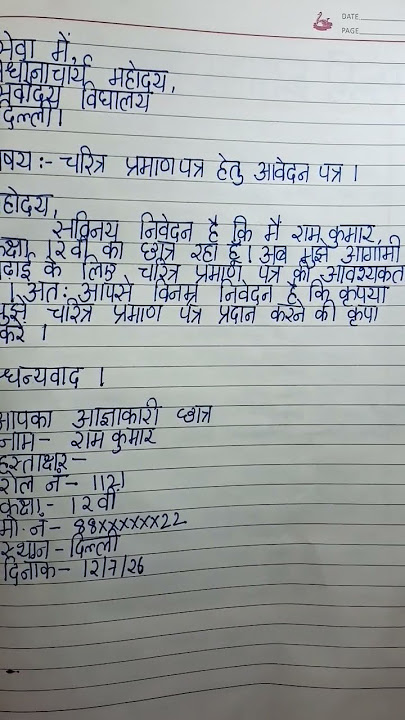 DATE
PAGE
सेवा में,
प्रधानाचार्य महोदय,
सर्वोदय विद्यालय
दिल्ली।
विषय :- चरित्र प्रमाणपत्र हेतु आवेदन पत्र ।
महोदय,
सविनय निवेदन है कि मै राम कुमार,
कक्षा 12वीं का छात्र रहा हूँ। अब मुझे आगामी
पढ़ाई के लिए चरित्र प्रमाण पत्र की आवश्यकत
। अतः आपसे विनम्र निवेदन है कि कृपया
मुझे चरित्र प्रमाण पत्र प्रदान करने की कृपा
करें ।
धन्यवाद ।
आपका आज्ञाकारी छात्र
नाम - राम कुमार
हस्ताक्षर -
रोल नं -
कक्षा - 12वीं
मो. नं - 88xxxxxx22
स्थान - दिल्ली
दिनांक - 12/7/26